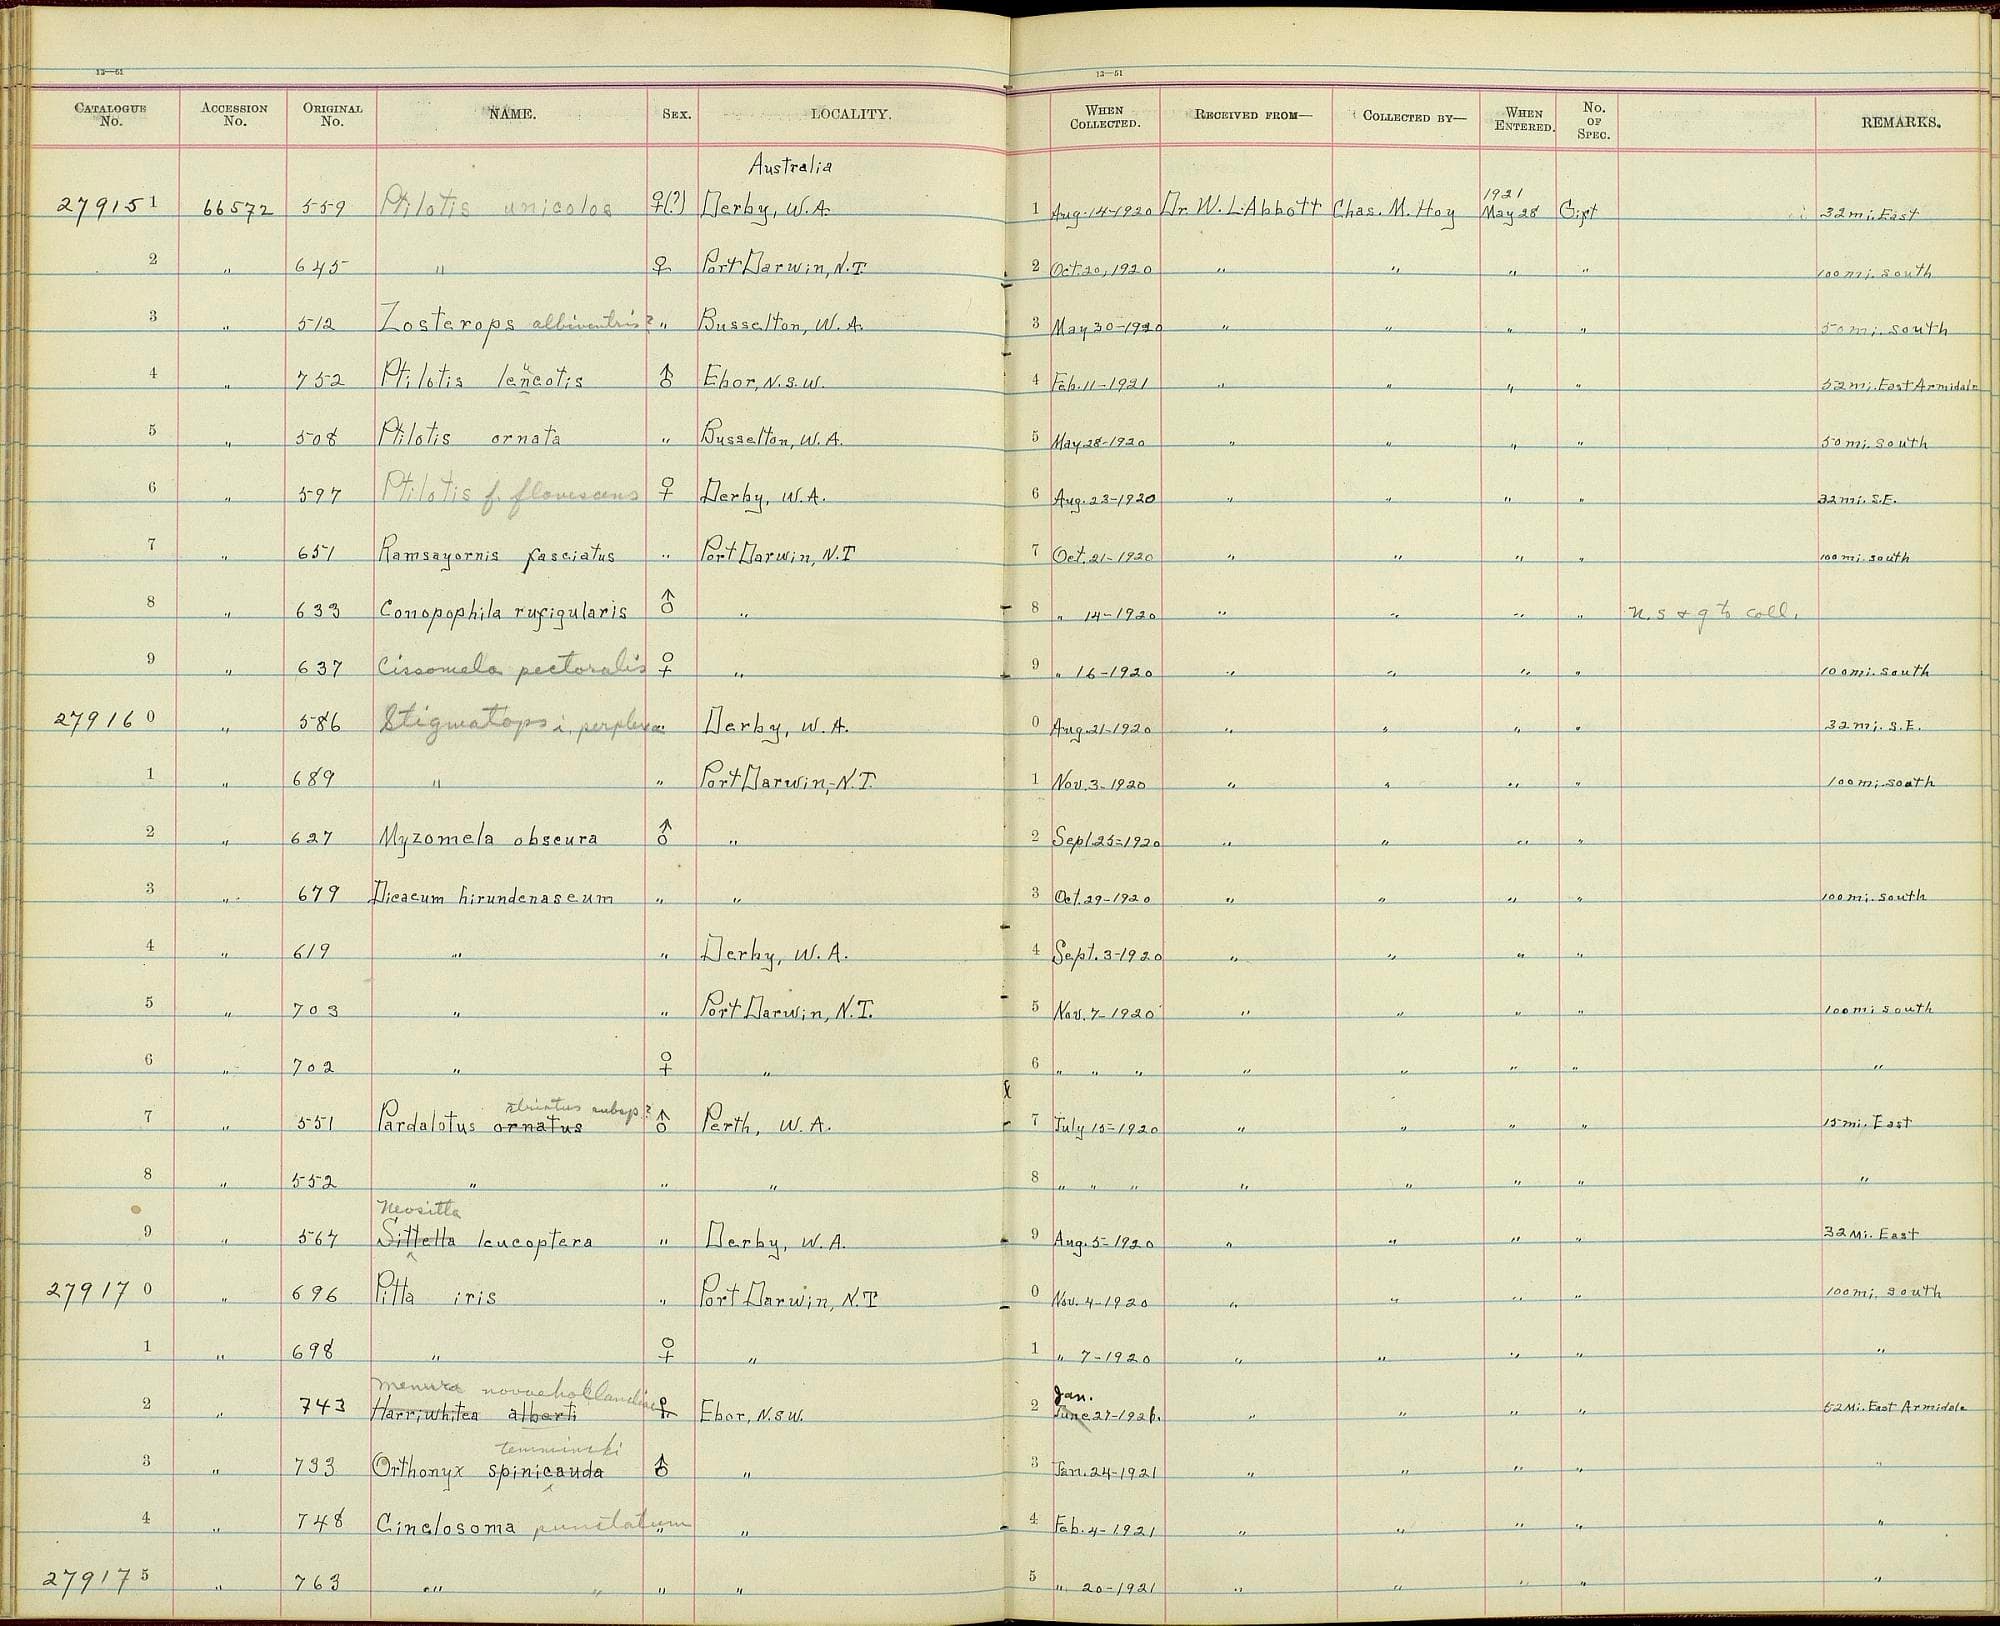 12—51 12—51
CATALOGUE No. ACCESSION No. ORIGINAL No. NAME. SEX. LOCALITY. WHEN COLLECTED. RECEIVED FROM— COLLECTED BY— WHEN ENTERED. No. OF SPEC. REMARKS.
Australia
279151 66572 559 Ptilotis unicolor ♀(?) Derby, W.A. 1 Aug. 14-1920 Dr. W. L. Abbott Chas. M. Hoy 1921 May 28 Gift 32 mi. East
2 " 645 " ♀ Port Darwin, N.T. 2 Oct. 20, 1920 " " " " 100 mi. south
3 " 512 Zosterops albiventris? " Busselton, W.A. 3 May 30-1920 " " " " 50 mi. south
4 " 752 Ptilotis leucotis ♂ Ebor, N.S.W. 4 Feb. 11-1921 " " " " 52 mi. East Armidale
5 " 508 Ptilotis ornata " Busselton, W.A. 5 May 28-1920 " " " " 50 mi. south
6 " 597 Ptilotis f. flavescens ♀ Derby, W.A. 6 Aug. 23-1920 " " " " 32 mi. S.E.
7 " 651 Ramsayornis fasciatus " Port Darwin, N.T 7 Oct. 21-1920 " " " " 100 mi. south
8 " 633 Conopophila rufigularis ♂ " 8 " 14-1920 " " " " n. s & g to coll.
9 " 637 Cissomela pectoralis ♀ " 9 " 16-1920 " " " " 100 mi. south
279160 " 586 Stigmatops i. perplexa " Derby, W.A. 0 Aug. 21-1920 " " " " 32 mi. S.E.
1 " 689 " " Port Darwin, N.T. 1 Nov. 3-1920 " " " " 100 mi. south
2 " 627 Myzomela obscura ♂ " 2 Sept. 25-1920 " " " "
3 " 679 Dicaeum hirundenaseum " " 3 Oct. 29-1920 " " " " 100 mi. south
4 " 619 " " Derby, W.A. 4 Sept. 3-1920 " " " "
5 " 703 " " Port Darwin, N.T. 5 Nov. 7-1920 " " " " 100 mi south
6 " 702 " ♀ " 6 " " " " " " " "
striatus subsp.?
7 " 551 Pardalotus ornatus ♂ Perth, W.A. 7 July 15-1920 " " " " 15 mi. East
8 " 552 " " " 8 " " " " " " " "
Neositta
9 " 567 Sittella leucoptera " Derby, W.A. 9 Aug. 5-1920 " " " " 32 Mi. East
279170 " 696 Pitta iris " Port Darwin, N.T 0 Nov. 4-1920 " " " " 100 mi. south
1 " 698 " ♀ " 1 " 7-1920 " " " " "
menura novaehollandiae Jan.
2 " 743 Harriwhitea alberti ♀ Ebor, N.S.W. 2 June 27-1921. " " " " 52 Mi. East Armidale
temmincki
3 " 733 Orthonyx spinicauda ♂ " 3 Jan. 24-1921 " " " " "
4 " 748 Cinclosoma punctatum " " 4 Feb. 4-1921 " " " " "
279175 " 763 " " " " 5 " 20-1921 " " " " "